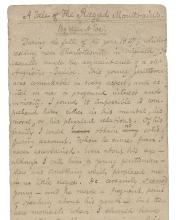 A Tale of The Ragged Mountains.
By Edgar A. Poe.
During the fall of the year 1827, while
residing near Charlottesville, in Virginia, I
casually made the acquaintance of a Mr
Augustus Bedloe. This young gentleman
was remarkable in every respect, and exci-
ted in me a profound interest and
curiosity. I found it impossible to com-
prehend him either in his mental, his
moral, or his physical relations. Of his
family I could obtain no satis-
factory account. Whence he came, I
never ascertained. Even about his age —
although I call him a young gentleman —
there was something which perplexed me
in no little degree. He certainly seemed
young — and he made a point
of speaking about his youth — yet there
were moments when I should have